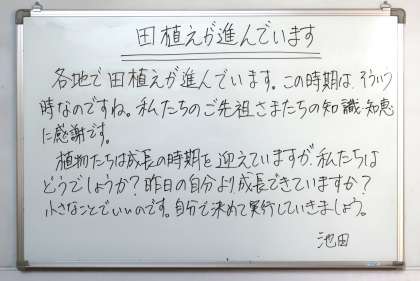 田植えが進んでいます
各地で田植えが進んでいます。この時期は、そういう
時なのですね。私たちのご先祖さまたちの知識・知恵
に感謝です。
植物たちは成長の時期を迎えていますが、私たちは
どうでしょうか?昨日の自分より成長できていますか?
小さなことでいいのです。自分で決めて実行していきましょう。
池田